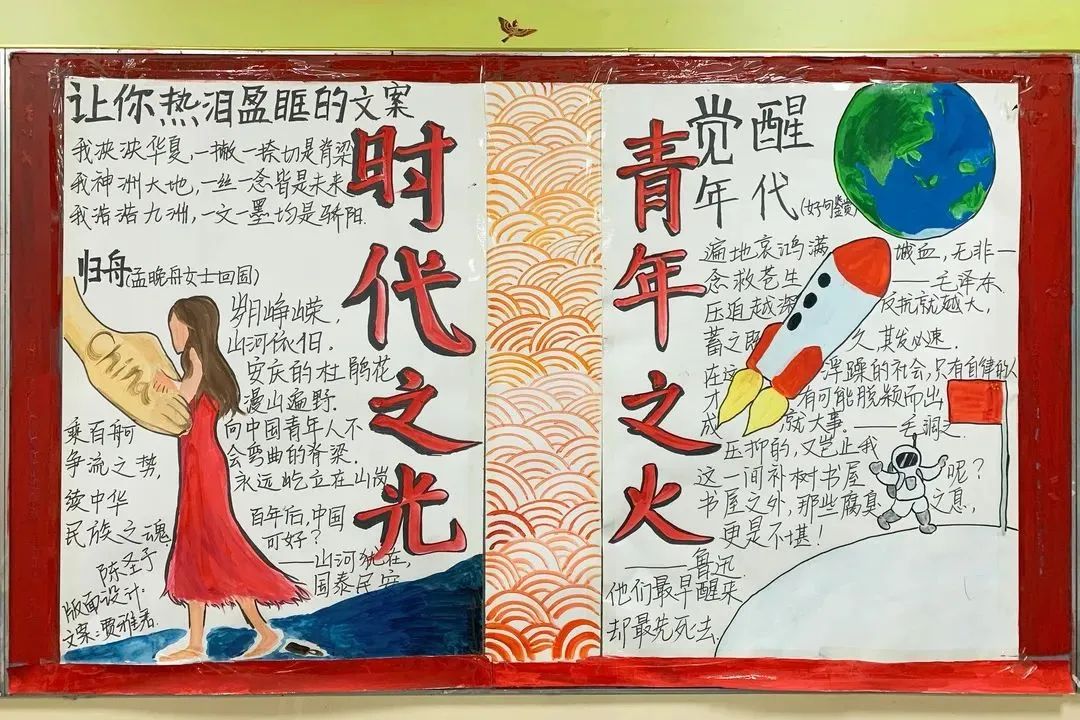 让你热泪盈眶的文案
我泱泱华夏,一撇一捺切是脊梁
我神洲大地,一丝一念皆是未来
我浩浩九洲,一文一墨均是骄阳.
时代之光
归舟(孟晚舟女士回国)
岁月峥嵘,
山河依旧.
安庆的杜鹃花
漫山遍野.
向中国青年人不
会弯曲的脊梁
永远屹立在山岗
百年后,中国
可好?
——山河犹在,
国泰民安
China
乘百舸
争流之势,
续中华
民族之魂.
版面设计:
陈圣予
文案:贾雅君.
青年之火
觉醒
年代(好句鉴赏)
遍地哀鸿满 城血,无非一
念救苍生 ——毛泽东.
压迫越深 反抗就越大,
蓄之 久其发必速.
在这 浮躁的社会,只有自律的人
才 有可能脱颖而出
成 就大事.——毛润之.
压抑的,又岂止我
这一间补树书屋 呢?
书屋之外,那些腐息 之息,
更是不堪!
——鲁迅.
他们最早醒来
却最先死去.